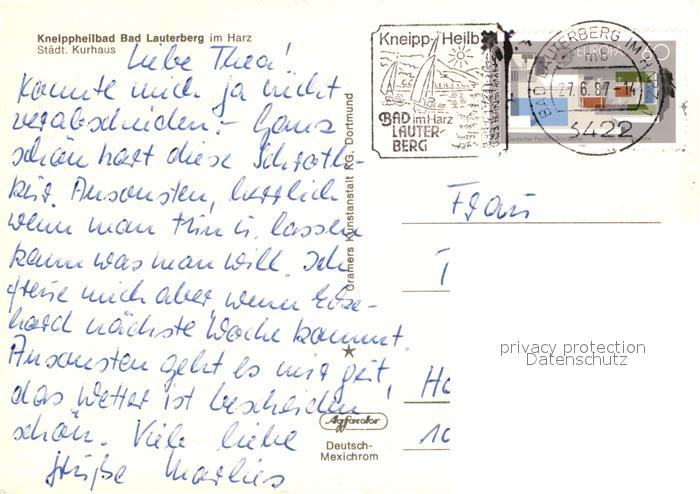 Kneippheilbad Bad Lauterberg im Harz
Städt. Kurhaus
Liebe Thea!
Konnte mich ja nicht
verabschieden. – Ganz
schön hart diese Schroth-
kur. Ansonsten, herrlich
wenn man tun u. lassen
kann was man will. Ich
freue mich aber, wenn
hard nächste Woche kommt.
Ansonsten geht es mir gut,
das Wetter ist bescheiden
schön. Viele liebe
Grüße Marlies
Cramers Kunstanstalt KG. Dortmund
Agfacolor
Deutsch-
Mexichrom
Kneipp-Heilb
BAD im Harz
LAUTER-
BERG
EUROPA 60
BAD LAUTERBERG IM HARZ 1
mb
27.6.87-14
3422
Frau
T
Ha
10
privacy protection
Datenschutz